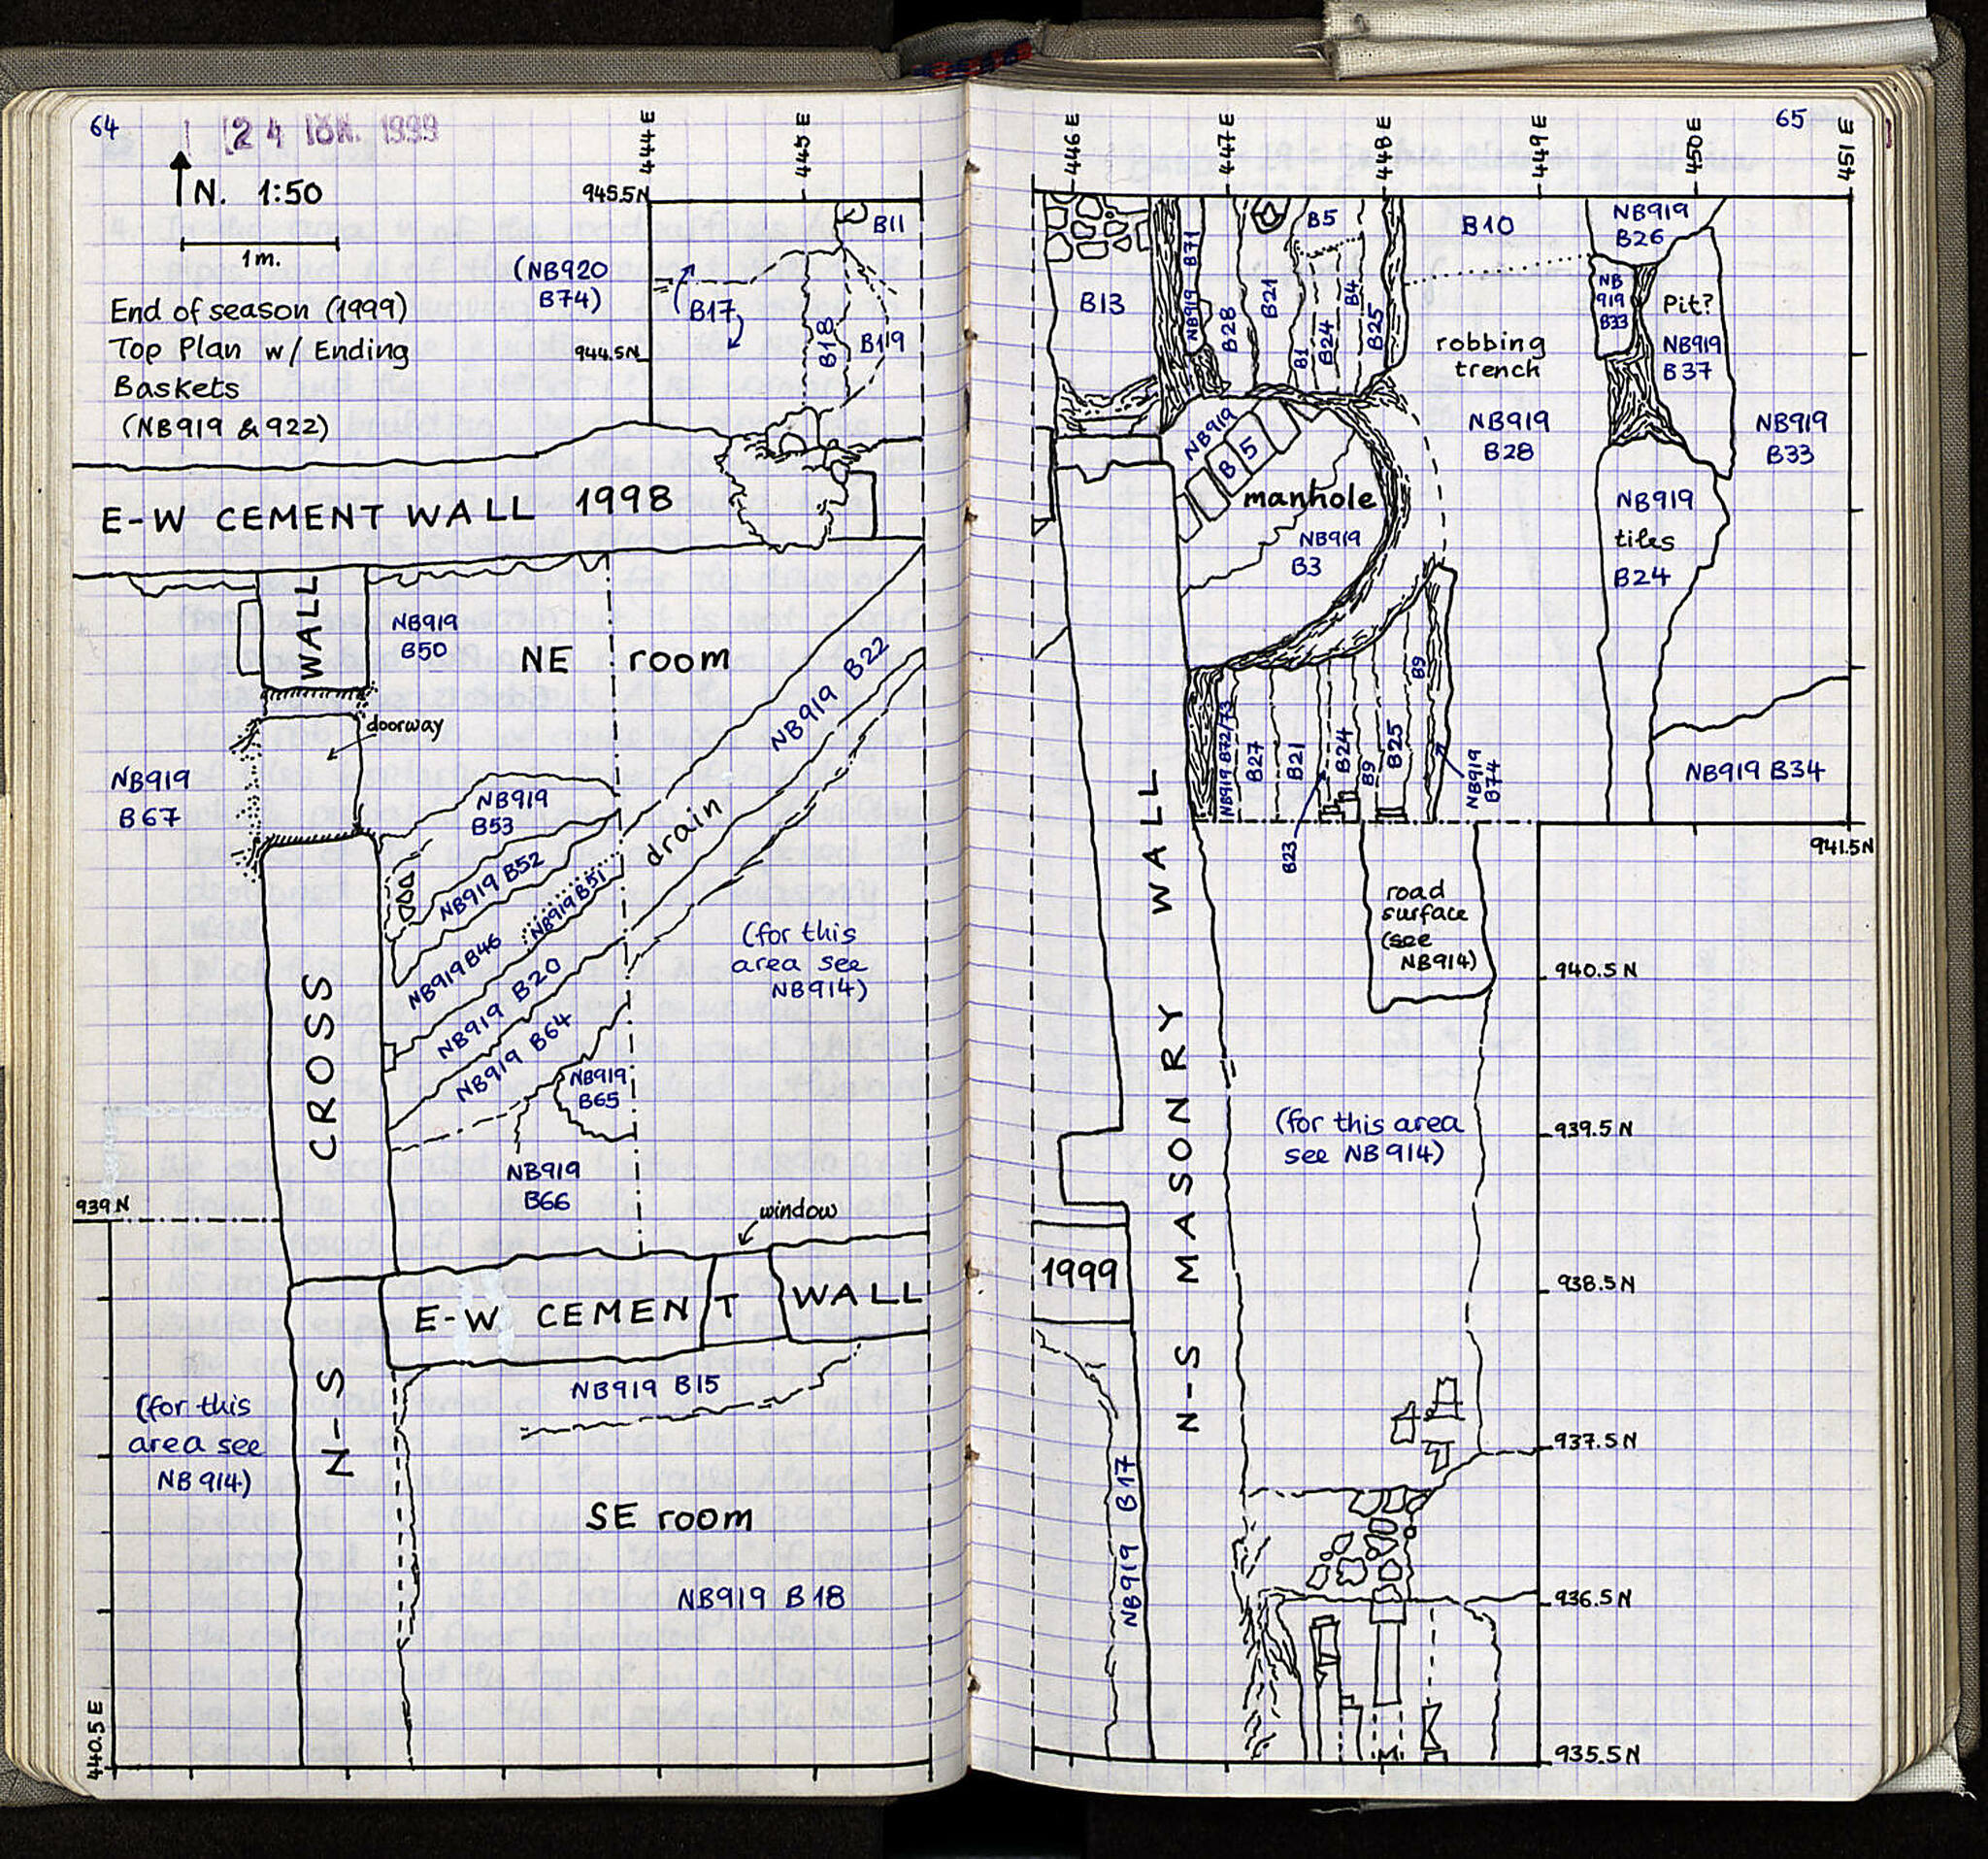 64
24 ΙΟΥΝ. 1999
N. 1:50
1m.
End of season (1999)
Top Plan w/ Ending
Baskets
(NB919 & 922)
444 E
445 E
945.5N
944.5N
(NB920
B74)
B17
B11
B18
B119
E-W CEMENT WALL 1998
WALL
NB919
B50
NE room
doorway
NB919
B67
NB919 B22
drain
NB919
B53
NB919 B52
NB919 B51
NB919 B46
NB919 B20
NB919 B64
NB919
B65
NB919
B66
(for this
area see
NB914)
CROSS
939N
window
E-W CEMENT WALL
N-S
NB919 B15
(for this
area see
NB914)
SE room
NB919 B18
440.5 E
65
446 E
447 E
448 E
449 E
450 E
451 E
B13
NB919 B71
B28
B21
B5
B1
B24
B4
B25
B10
NB919
B26
NB
919
B33
Pit?
NB919
B37
robbing
trench
NB919
B28
NB919
B33
NB919
B5
manhole
NB919
B3
NB919
tiles
B24
NB919 B72/73
B27
B21
B24
B9
B25
B9
NB919
B74
B23
NB919 B34
941.5N
road
surface
(see
NB914)
940.5 N
939.5 N
938.5 N
937.5 N
936.5 N
935.5 N
(for this area
see NB914)
N-S MASONRY WALL
1999
NB919 B17